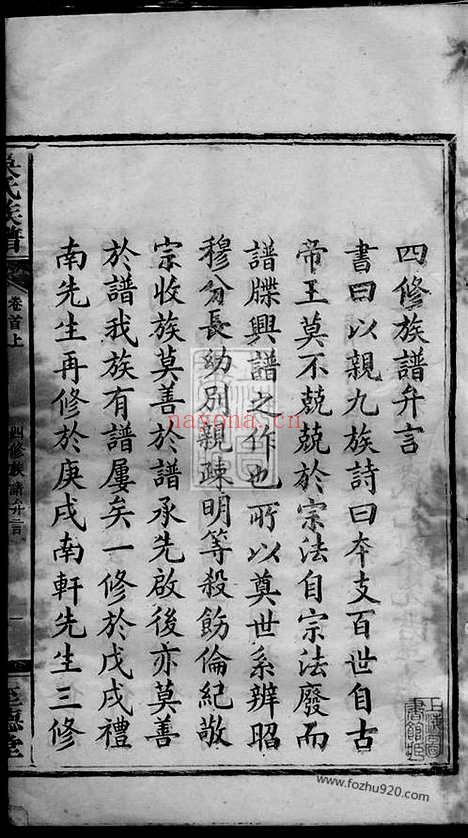 四修族譜弁言
書曰以親九族詩曰本支百世自古
帝王莫不兢兢於宗法自宗法廢而
譜牒興譜之作也所以奠世系辨昭
穆分長幼別親疎明等殺飭倫紀敬
宗收族莫善於譜承先啟後亦莫善
於譜我族有譜屢矣一修於戊戌禮
南先生再修於庚戌南軒先生三修
吳氏族譜
卷首上
四修族譜弁言
一
至德堂
nayona.cn
www.fozhu920.com